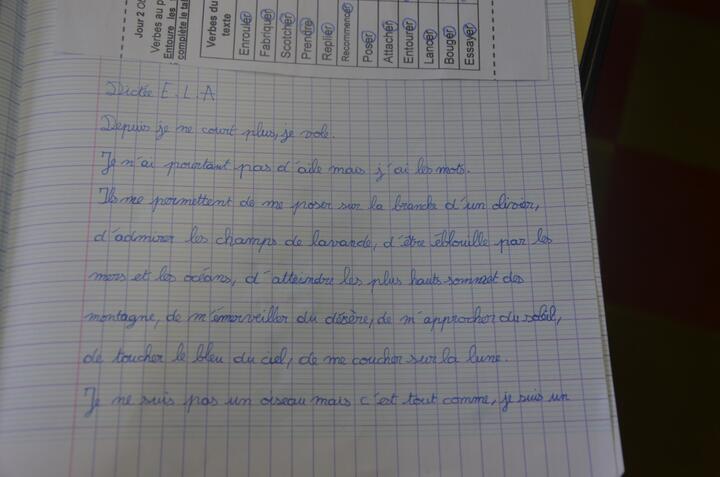 Jour 2
Verbes au p
Entoure les
complète le tal
Verbes du texte
Enrouler
Fabriquer
Scotcher
Prendre
Replier
Recommencer
Poser
Attacher
Entourer
Lancer
Bouger
Essayer
Dictée E.L.A
Depuis je ne court plus, je vole.
Je n'ai pourtant pas d'aile mais j'ai les mots.
Ils me permettent de me poser sur la branche d'un olivier,
d'admirer les champs de lavande, d'être éblouille par les
mers et les océans, d'atteindre les plus hauts sommet des
montagne, de m'émerveiller du désère, de m'approcher du soleil,
de toucher le bleu du ciel, de me coucher sur la lune.
Je ne suis pas un oiseau mais c'est tout comme, je suis un